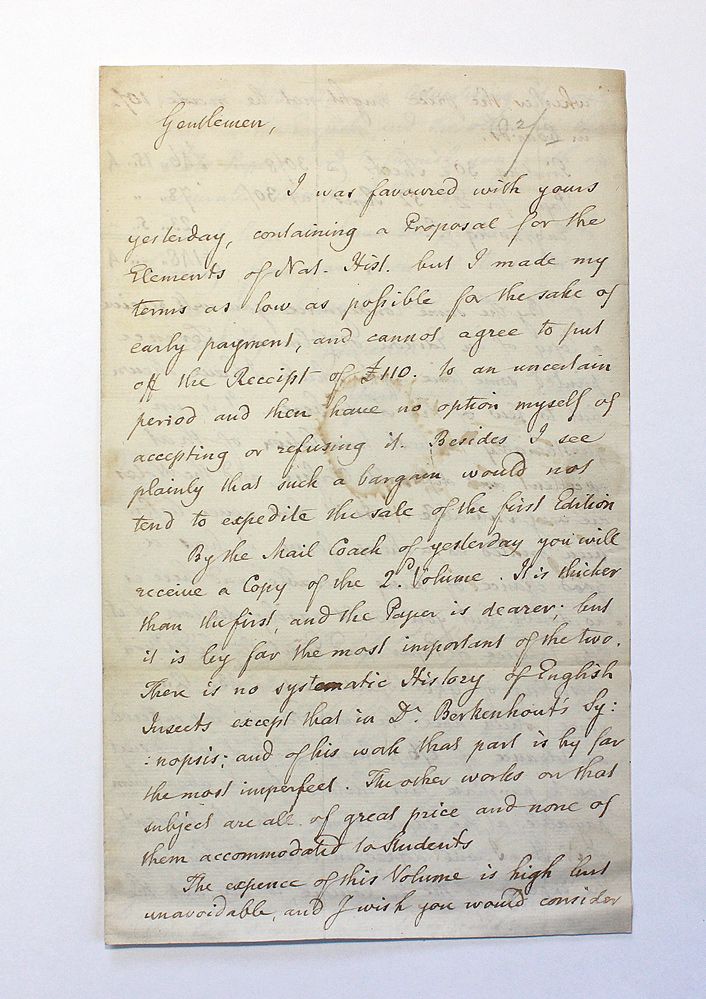 Gentlemen,
I was favoured with yours
yesterday, containing a Proposal for the
Elements of Nat. Hist. but I made my
terms as low as possible for the sake of
early payment, and cannot agree to put
off the Receipt of £110. to an uncertain
period and then have no option myself of
accepting or refusing it. Besides I see
plainly that such a bargain would not
tend to expedite the sale of the first Edition
By the Mail Coach of yesterday you will
receive a Copy of the 2d. Volume. It is thicker
than the first, and the Paper is dearer; but
it is by far the most important of the two.
There is no systematic History of English
Insects except that in Dr. Berkenhout's Sy:
:nopsis; and of his work that part is by far
the most imperfect. The other works on that
subject are all of great price and none of
them accommodated to Students
The expence of this Volume is high but
unavoidable, and I wish you would consider